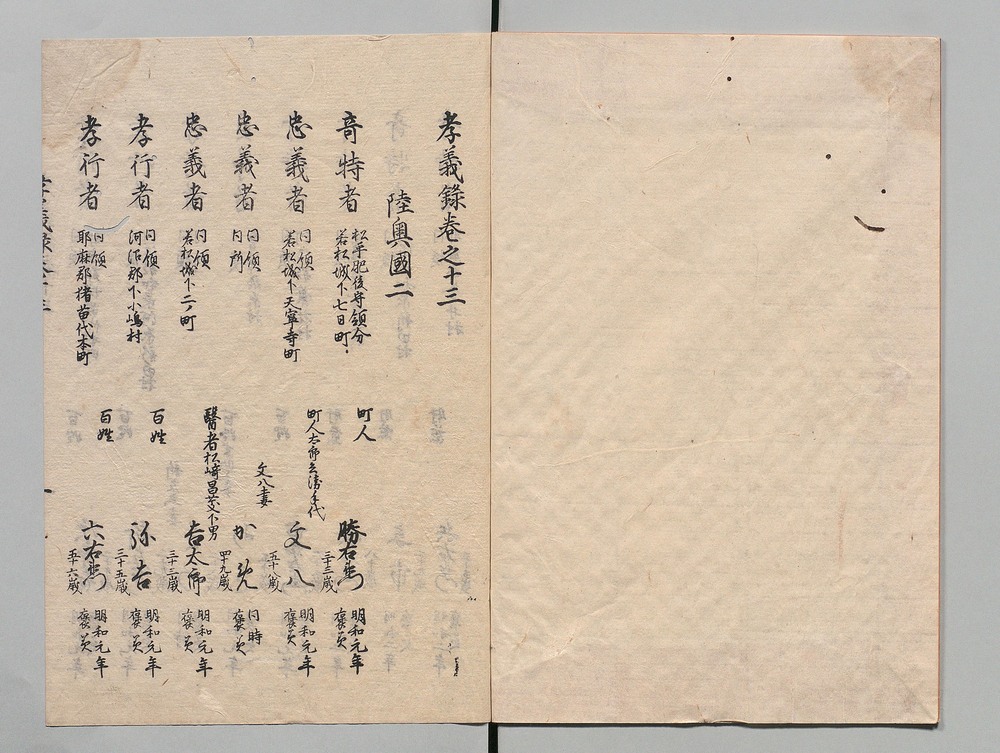 孝義錄卷之十三
陸奥國二
竒特者 松平肥後守領分 若松城下七日町 町人 勝右衛門 三十三歳 明和元年 褒美
忠義者 同領 若松城下天寧寺町 町人太郎兵衛手代 文八 五十八歳 明和元年 褒美
忠義者 同領 同所 文八妻 かね 四十九歳 同時 褒美
忠義者 同領 若松城下二ノ町 醫者松﨑昌又下男 吉太郎 三十三歳 明和元年 褒美
孝行者 同領 河沼郡下小嶋村 百姓 弥吉 三十五歳 明和元年 褒美
孝行者 同領 耶麻郡猪苗代本町 百姓 六右衛門 五十六歳 明和元年 褒美